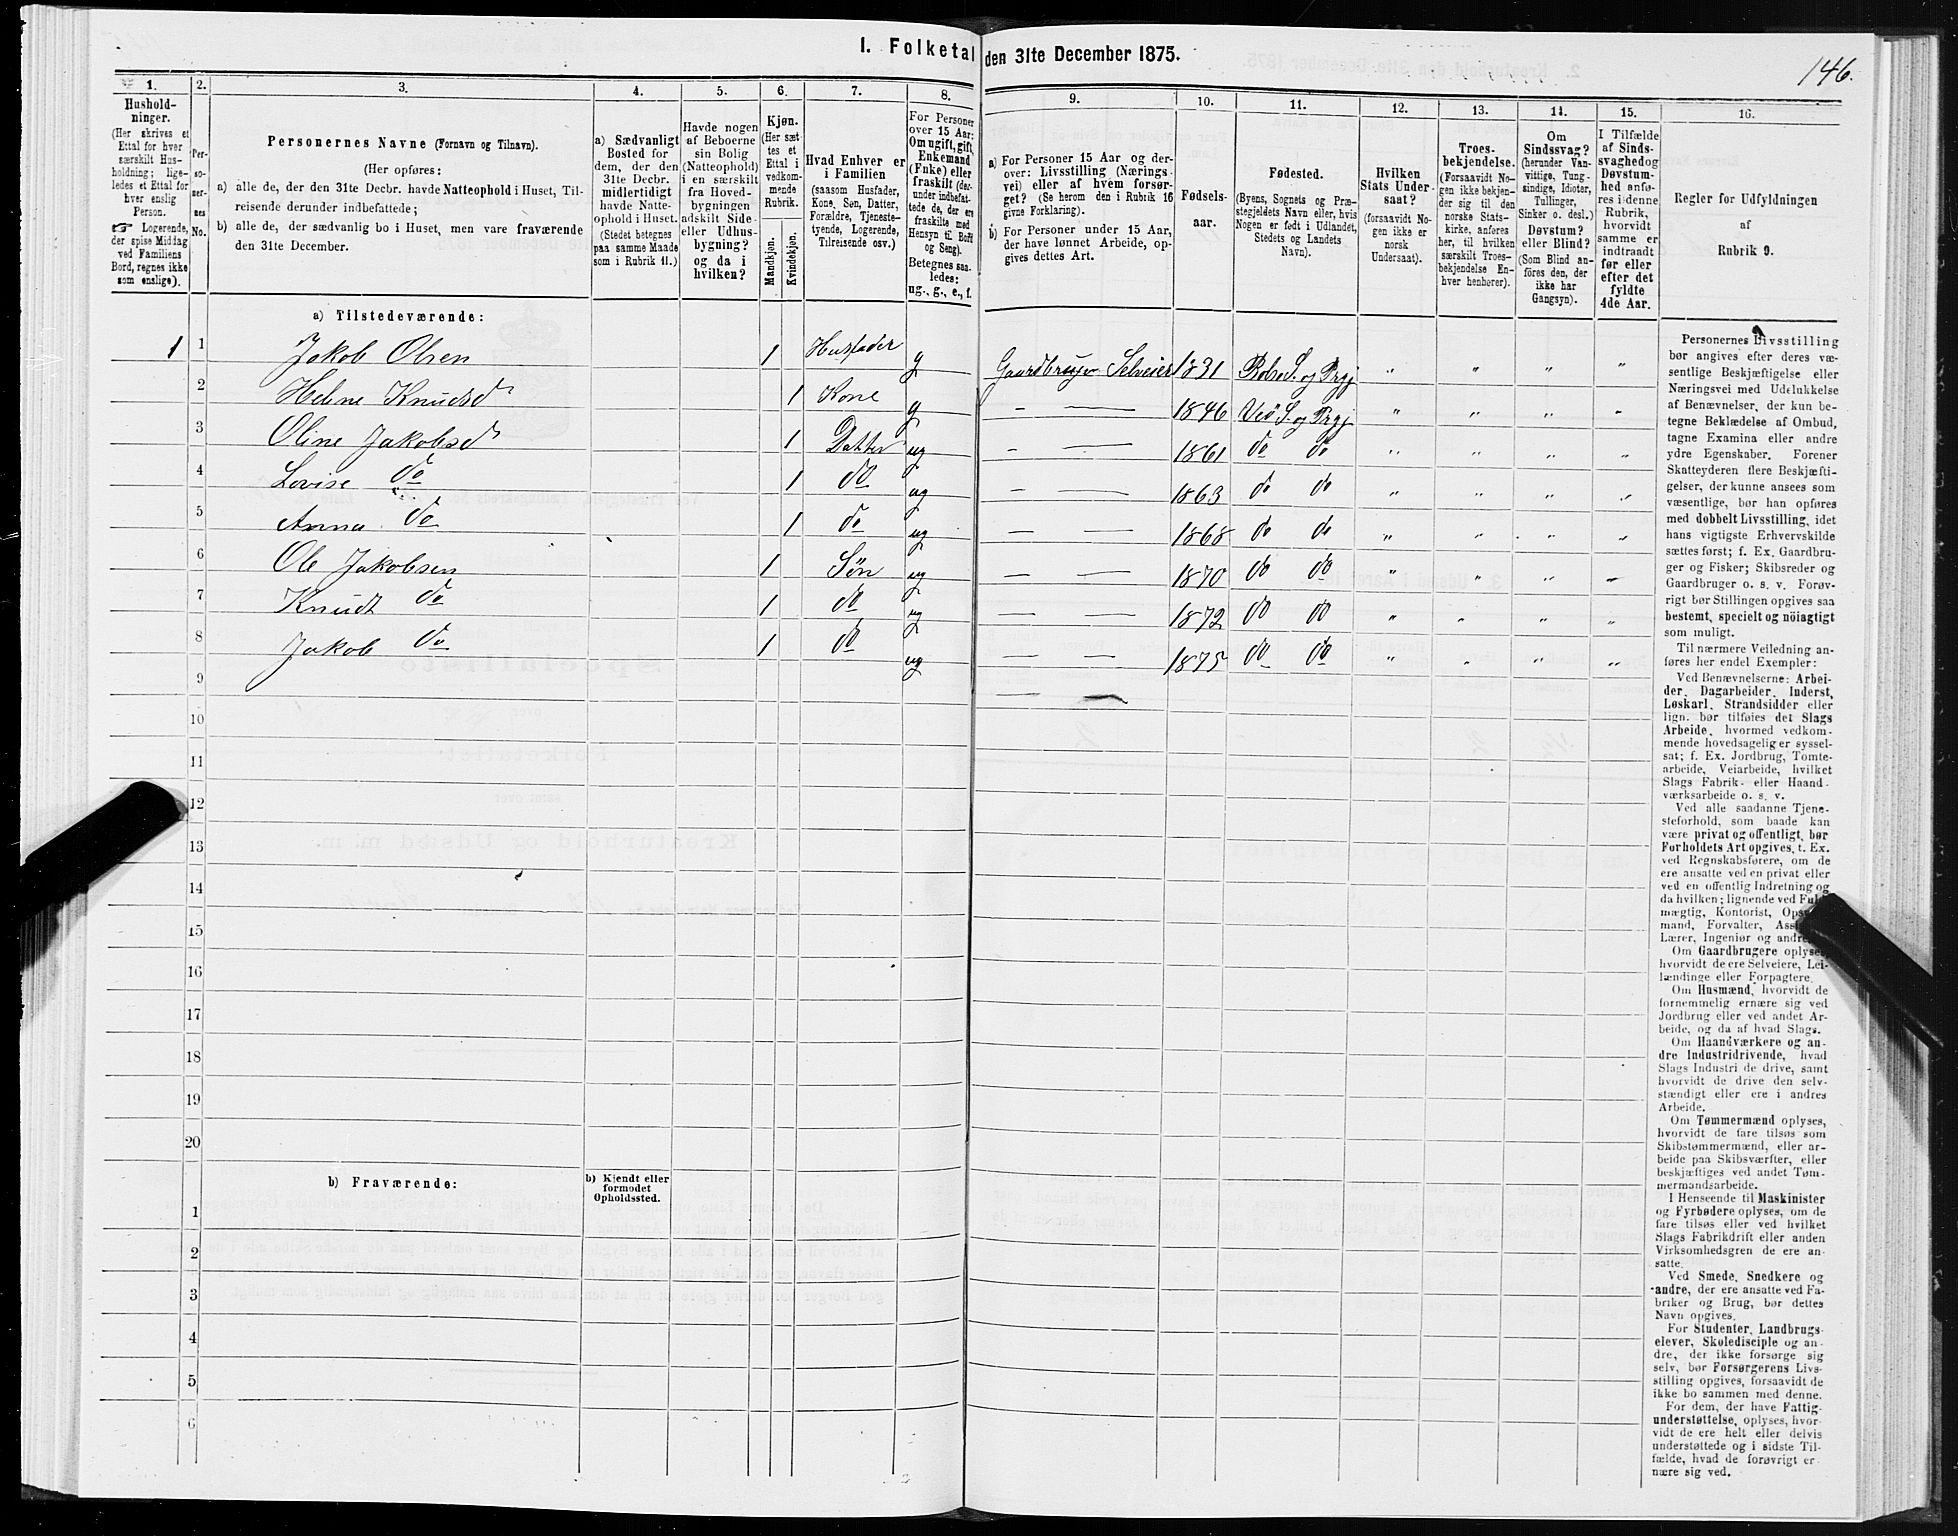 I. Folketal den 31te December 1875.
146.
1.
Hushold-
ninger.
(Her skrives et
Ettal for hver
særskilt Hus-
holdning; lige-
ledes et Ettal for
hver enslig
Person.
☞ Logerende,
der spise Middag
ved Familiens
Bord, regnes ikke
som enslige).
2.
Per-
so-
ner-
nes
No.
3.
Personernes Navne (Fornavn og Tilnavn).
(Her opføres:
a) alle de, der den 31te Decbr. havde Natteophold i Huset, Til-
reisende derunder indbefattede;
b) alle de, der sædvanlig bo i Huset, men vare fraværende
den 31te December.
4.
a) Sædvanligt
Bosted for
dem, der den
31te Decbr.
midlertidigt
havde Natte-
ophold i Huset.
(Stedet betegnes
paa samme Maade
som i Rubrik 11.)
5.
Havde nogen
af Beboerne
sin Bolig
(Natteophold)
i en særskilt
fra Hoved-
bygningen
adskilt Side-
eller Udhus-
bygning?
og da i
hvilken?
6.
Kjøn.
(Her sæt-
tes et
Ettal i
vedkom-
mende
Rubrik.
Mandkjøn.
Kvindekjøn.
7.
Hvad Enhver er
i Familien
(saasom Husfader,
Kone, Søn, Datter,
Forældre, Tjeneste-
tyende, Logerende,
Tilreisende osv.)
8.
For Personer
over 15 Aar:
Om ugift, gift,
Enkemand
(Enke) eller
fraskilt (der-
under indbefat-
tede de, der ere
fraskilte med
Hensyn til Bord
og Seng).
Betegnes saa-
ledes:
ug., g., e., f.
9.
a) For Personer 15 Aar og der-
over: Livsstilling (Nærings-
vei) eller af hvem forsør-
get? (Se herom den i Rubrik 16
givne Forklaring).
b) For Personer under 15 Aar,
der have lønnet Arbeide, op-
gives dettes Art.
10.
Fødsels-
aar.
11.
Fødested.
(Byens, Sognets og Præ-
stegjeldets Navn eller, hvis
Nogen er født i Udlandet,
Stedets og Landets
Navn).
12.
Hvilken
Stats Under-
saat?
(forsaavidt No-
gen ikke er
norsk
Undersaat).
13.
Troes-
bekjendelse.
(Forsaavidt No-
gen ikke bekjen-
der sig til den
norske Stats-
kirke, anføres
her, til hvilken
særskilt Troes-
bekjendelse En-
hver henhører).
14.
Om
Sindssvag?
(herunder Van-
vittige, Tung-
sindige, Idioter,
Tullinger,
Sinker o. desl.)
Døvstum?
eller Blind?
(Som Blind an-
føres den, der
ikke har
Gangsyn).
15.
I Tilfælde
af Sinds-
svaghed og
Døvstum-
hed anfø-
res i denne
Rubrik,
hvorvidt
samme er
indtraadt
før eller
efter det
fyldte
4de Aar.
16.
Regler for Udfyldningen
af
Rubrik 9.
a) Tilstedeværende:
1 1 Jakob Olsen 1 Husfader g Gaardbruger Selveier 1831 Bolsø S. og Prgj " " " "
2 Helene Knudsd 1 Kone g — — 1846 Veø S og Prgj " " " "
3 Oline Jakobsd 1 Datter ug — — 1861 do do " " " "
4 Lovise do 1 do ug — — 1863 do do " " " "
5 Anna do 1 do ug — — 1868 do do " " " "
6 Ole Jakobsen 1 Søn ug — — 1870 do do " " " "
7 Knudt do 1 do ug — — 1872 do do " " " "
8 Jakob do 1 do ug — — 1875 do do " " " "
9 — —
10
11
12
13
14
15
16
17
18
19
20
b) Fraværende:
b) Kjendt eller
formodet
Opholdssted.
1
2
3
4
5
6
Personernes Livsstilling
bør angives efter deres væ-
sentlige Beskjæftigelse eller
Næringsvei med Udelukkelse
af Benævnelser, der kun be-
tegne Beklædelse af Ombud,
tagne Examina eller andre
ydre Egenskaber. Forener
Skatteyderen flere Beskjæfti-
gelser, der kunne ansees som
væsentlige, bør han opføres
med dobbelt Livsstilling, idet
hans vigtigste Erhvervskilde
sættes først; f. Ex. Gaardbru-
ger og Fisker; Skibsreder og
Gaardbruger o. s. v. Forøv-
rigt bør Stillingen opgives saa
bestemt, specielt og nöiagtigt
som muligt.
Til nærmere Veiledning an-
føres her endel Exempler:
Ved Benævnelserne: Arbei-
der, Dagarbeider, Inderst,
Løskarl, Strandsidder eller
lign. bør tilføies det Slags
Arbeide, hvormed vedkom-
mende hovedsagelig er syssel-
sat; f. Ex. Jordbrug, Tomte-
arbeide, Veiarbeide, hvilket
Slags Fabrik- eller Haand-
værksarbeide o. s. v.
Ved alle saadanne Tjene-
steforhold, som baade kan
være privat og offentligt, bør
Forholdets Art opgives, t. Ex.
ved Regnskabsførere, om de
ere ansatte ved en privat eller
ved en offentlig Indretning og
da hvilken; lignende ved
mægtig, Kontorist,
mand, Forvalter,
Lærer, Ingeniør og andre.
Om Gaardbrugere oplyses,
hvorvidt de ere Selveiere, Lei-
lændinge eller Forpagtere.
Om Husmænd, hvorvidt de
fornemmelig ernære sig ved
Jordbrug eller ved andet Ar-
beide, og da af hvad Slags.
Om Haandværkere og an-
dre Industridrivende, hvad
Slags Industri de drive, samt
hvorvidt de drive den selv-
stændigt eller ere i andres
Arbeide.
Om Tømmermænd oplyses,
hvorvidt de fare tilsøs som
Skibstømmermænd, eller ar-
beide paa Skibsværfter, eller
beskjæftiges ved andet Tøm-
mermandsarbeide.
I Henseende til Maskinister
og Fyrbødere oplyses, om de
fare tilsøs eller ved hvilket
Slags Fabrikdrift eller anden
Virksomhedsgren de ere an-
satte.
Ved Smede, Snedkere og
andre, der ere ansatte ved Fa-
briker og Brug, bør dettes
Navn opgives.
For Studenter, Landbrugs-
elever, Skoledisciple og an-
dre, der ikke forsørge sig
selv, bør Forsørgerens Livs-
stilling opgives, forsaavidt de
ikke bo sammen med denne.
For dem, der have Fattig-
understøttelse, oplyses, hvor-
vidt de ere helt eller delvis
understøttede og i sidste Til-
fælde, hvad de forøvrigt er-
nære sig ved.